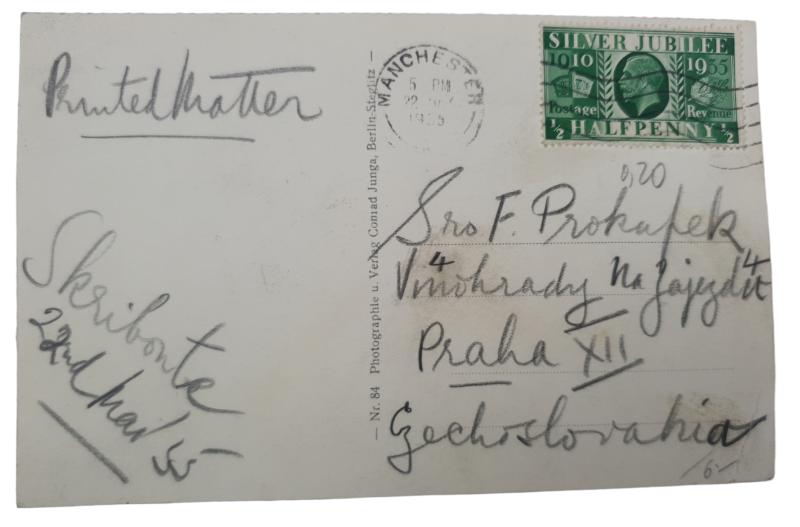 Printed Matter
Skribonte
22nd Mai 35
— Nr. 84 Photographie u. Verlag Conrad Junga, Berlin-Steglitz —
MANCHESTER
5 PM
22
1935
SILVER JUBILEE
1910 1935
Postage Revenue
½ HALFPENNY ½
0,20
Sro F. Prokupek
Vinohrady Na
Praha XII
Czechoslovakia
6-